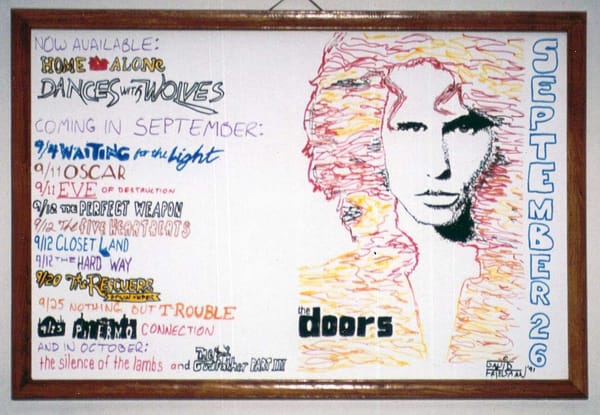 NOW AVAILABLE:
HOME ALONE
DANCES with WOLVES
COMING IN SEPTEMBER:
9/4 WAITING for the Light
9/11 OSCAR
9/11 EVE OF DESTRUCTION
9/12 THE PERFECT WEAPON
9/12 THE FIVE HEARTBEATS
9/12 CLOSET LAND
9/12 THE HARD WAY
9/20 The RESCUERS
DOWN UNDER
9/25 NOTHING BUT TROUBLE
CONNECTION
AND IN OCTOBER:
the silence of the lambs and The Godfather PART III
the doors
SEPTEMBER 26
DAVID
'91